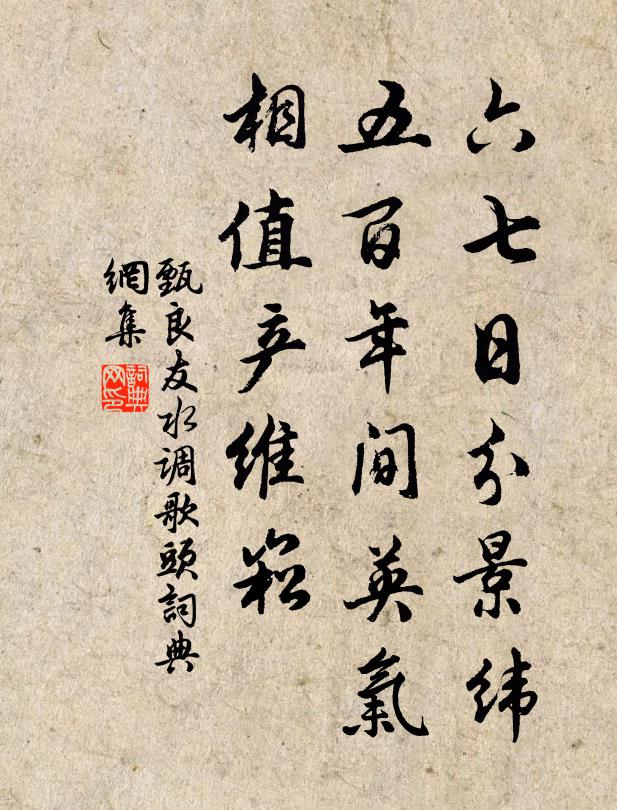 六七日分景緯
五百年间英氣
相值产維崧
甄良友水调歌頭詞典
網集
詞典
网印